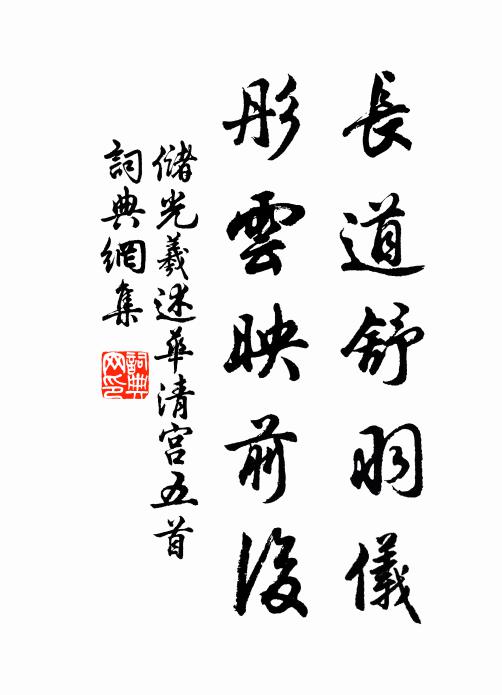 長道舒羽儀
彤雲映前後
儲光羲述華清宮五首
詞典網集
詞典
网印